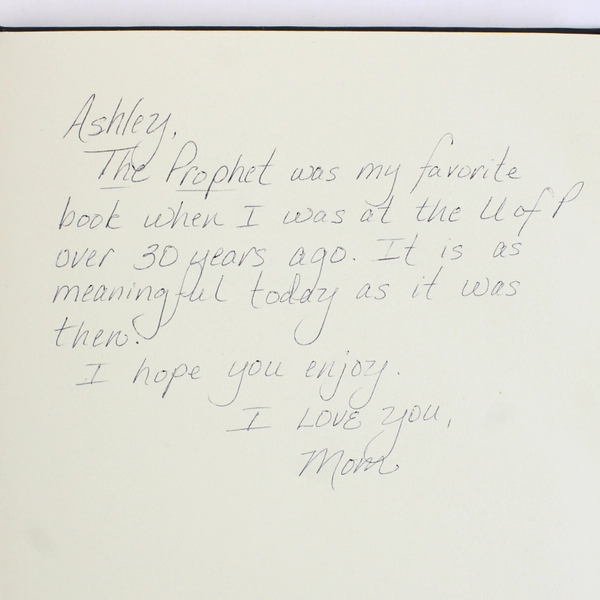 Ashley,
The Prophet was my favorite
book when I was at the U of P
over 30 years ago. It is as
meaningful today as it was
then.
I hope you enjoy.
I LOVE you,
Mom